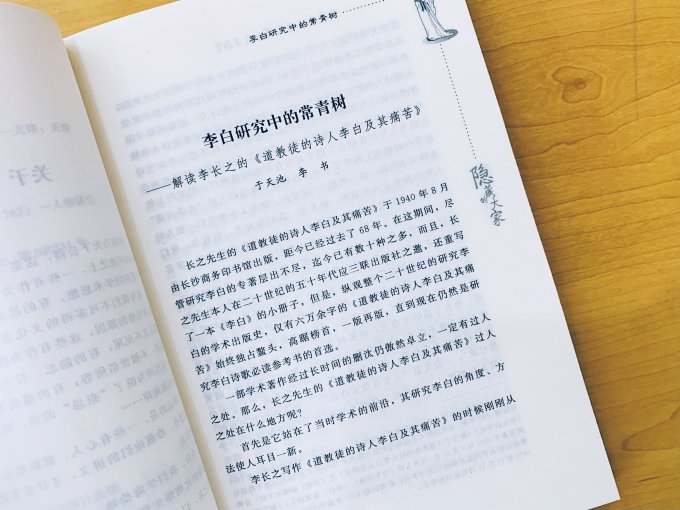 李白研究中的常青树
李白研究中的常青树
——解读李长之的《道教徒的诗人李白及其痛苦》
于天池 李 书
长之先生的《道教徒的诗人李白及其痛苦》于1940年8月
由长沙商务印书馆出版，距今已经过去了68年。在这期间，尽
管研究李白的专著层出不尽，迄今已有数十种之多，而且，长
之先生本人在二十世纪的五十年代应三联出版社之邀，还重写
了一本《李白》的小册子，但是，纵观整个二十世纪的研究李
白的学术出版史，仅有六万余字的《道教徒的诗人李白及其痛
苦》始终独占鳌头，高踞榜首，一版再版，直到现在仍然是研
究李白诗歌必读参考书的首选。
一部学术著作经过长时间的删汰仍傲然卓立，一定有过人
之处。那么，长之先生的《道教徒的诗人李白及其痛苦》过人
之处在什么地方呢？
首先是它站在了当时学术的前沿，其研究李白的角度、方
法使人耳目一新。
李长之写作《道教徒的诗人李白及其痛苦》的时候刚刚从
隐藏的大家
关于